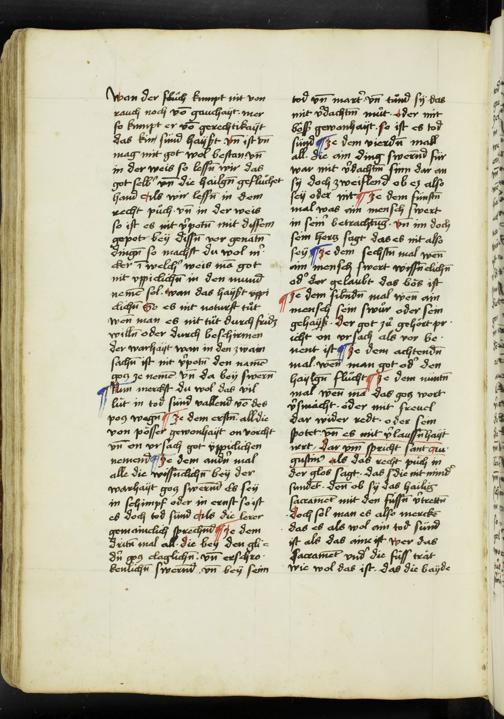 wan der fluͦch kumpt nit von
rauch noch vō gauchayt · wer
so kumpt er vō gerechtikayt
das kain sünd haysst vn̄ ist vn̄
mag mit got wol bestan vn̄
in der weis so lessn̄ wir das
got selb vn̄ die hailgn̄ gefluͦchet
hand als wir lessn̄ in dem
recht puͦch vn̄ in der weis
so ist es nit v̓potn̄ mit dyssem
gepot · bey dissn̄ vor genatn̄
dinge so machst du wol
in welch weis mā got
nit vppiclichn̄ in den mund
neme sol · wan das haysst vppi
clichn̄ So es nit noturft tuͦt
wen man es nit tuͦt durch fridz
willn̄ oder durch beschirmen
der warhayt wan in den zwain
sachn̄ ist nit v̓potn̄ den namē
goz ze nemē vn̄ da bey swern
Nun merckst du wol das vil
lüt in tod sünd vallend vō des
von wegn̄ ¶ Ze dem erstn̄ all die
von posser gewonhayt on vorcht
vn̄ on vrsach got vppiclichen
nemend ¶ Ze dem andn̄ mal
alle die wissiclichn̄ bey der
warhayt goz swernd es sey
in schimpf oder in ernst so ist
es doch tod sünd als die lerer
gemainclich sprechnd ¶ Ze dem
dritn̄ mal all die bey den gli-
dn̄ goz claglichn̄ · vn̄ erschro-
kenlichn̄ swernd · vn̄ bey sein
tod vn̄ martr̓ vn̄ tünd sy das
mit v̓dachtm̄ muͦt oder mit
böss gewonhayt · so ist es tod
sünd ¶ Ze dem vierdn̄ mall
all die ain ding swernd für
war mit v̓dachtm̄ sinn dar an
sy doch zweiflend ob es also
sey oder nit ¶ Ze dem fünftn̄
mal was ain mensch swert
in sein betrachtung · vn̄ im doch
sein herz sagt das es nit also
sey ¶ Ze dem sechstn̄ mal wen
ain mensch swert wissenclichn̄
od̓ der gelaubt das bös ist
¶ Ze dem sibndn̄ mal wen ain
mensch sein swuͦr oder sein
gehayss · der got zuͦ gehört pr
icht on vrsach als vor be
nent ist ¶ Ze dem achtendn̄
mal wen man got od̓ den
haylgn̄ fluͦcht ¶ Ze dem nüntn̄
mal wen mā das goz wort
v̓smächt · oder mit frevel
dar wider redt · oder sein
spotet vn̄ es mit v̓laussnhayt
irrt · dar vm̄ spricht sant au
gustin̓ als das recht puͦch in
der glos sagt · das die nit mind̓
sündet · den ob sy das hailig
sacramet mit den fuͤssn̄ v̓tretn̄
doch sol man es also mercke
das es als wol ain tod sünd
ist als das ainr ist wer das
sacramet vnd̓ die fuͤss trät
wie wol das ist · das die bayde